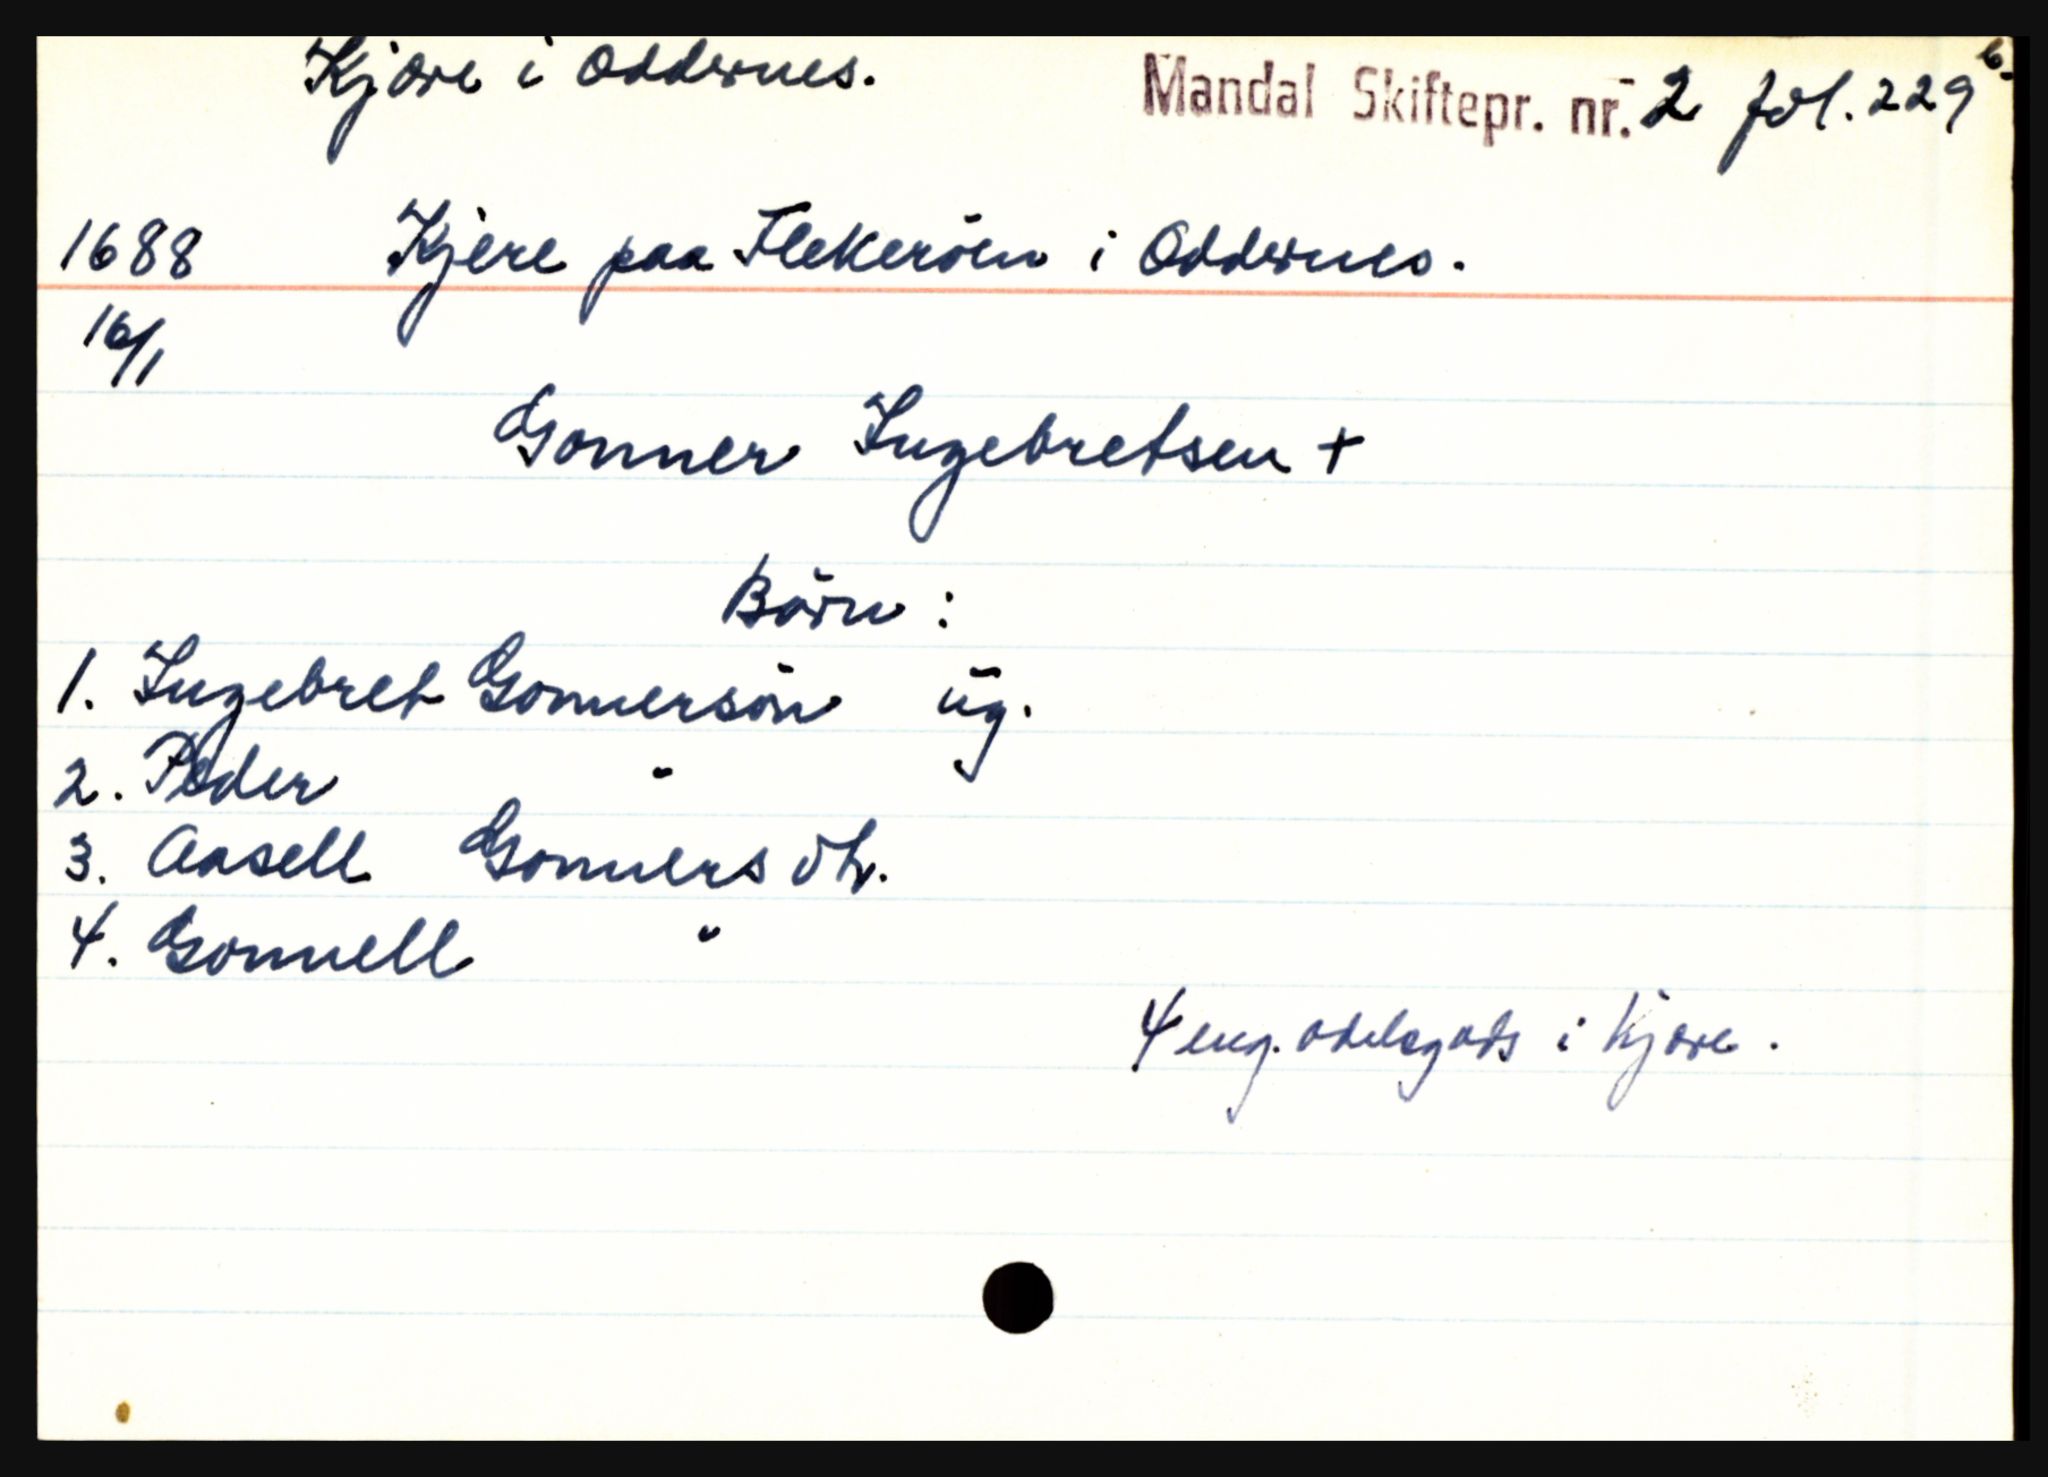 Kjære i Oddernes. Mandal Skiftepr. nr. 2 fol. 229 b.
1688 Kjere paa Flekeröen i Oddernes.
16/1
Gonner Ingebretsen +
Börn :
1. Ingebret Gonnersön ug.
2. Peder "
3. Aasell Gonners dtr.
4. Gonnell "
4 eng. odelsgods i Kjære.